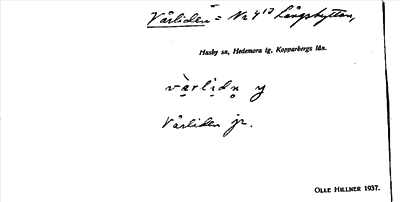 Vårliden = Nr 4¹³ Långshyttan,
Husby sn, Hedemora tg, Kopparbergs län.
vàrlidn y
Vårliden jr.
OLLE HILLNER 1937.